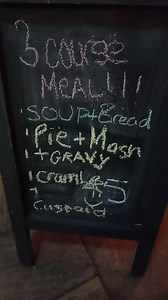 3 course
MEAL!!!
·SOUP+Bread
·Pie+Mash
+GRAVY
·Crumble
+ £5
Custard.